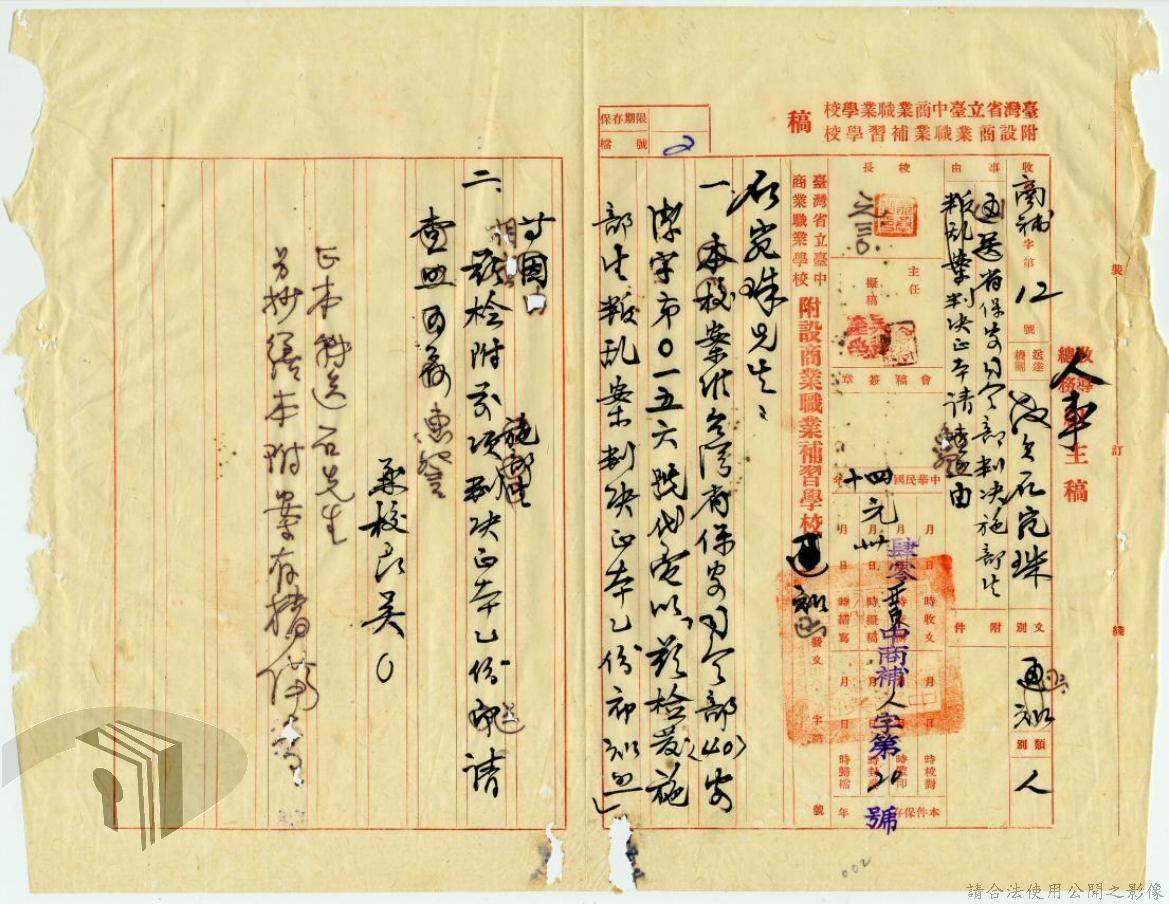 臺灣省立臺中商業職業學校
附設商業職業補習學校
稿
保存期限
檔號
2
人事
主稿
收 商補字第12號
送達機關
石宛珠
文別
通知
類別
人
事由
送省保安司令部判決施部生
叛乱案判決正本請 由
附件
校長
元三0
主任
擬稿
會稿簽章
中華民國四十年
元 卅
月日時收文
月日時擬稿
月日時繕寫
月日時校對
時監印
時歸檔
本件保存 年
肆零 中商補人字第20號
臺灣省立臺中
商業職業學校
附設商業職業補習學校
發文 字第 號
石宛珠先生:
一、本校案准台灣省保安司令部(40)安
潔字第0一五六號代電以「茲檢發施
部生叛乱案判決正本乙份希知照」
等因
二、茲檢附前項判決正本乙份 請
施部生
查照 惠
兼校長吳○
正本 送石先生
另抄繕本附案存檔備
裝
訂
綫
002
請合法使用公開之影像